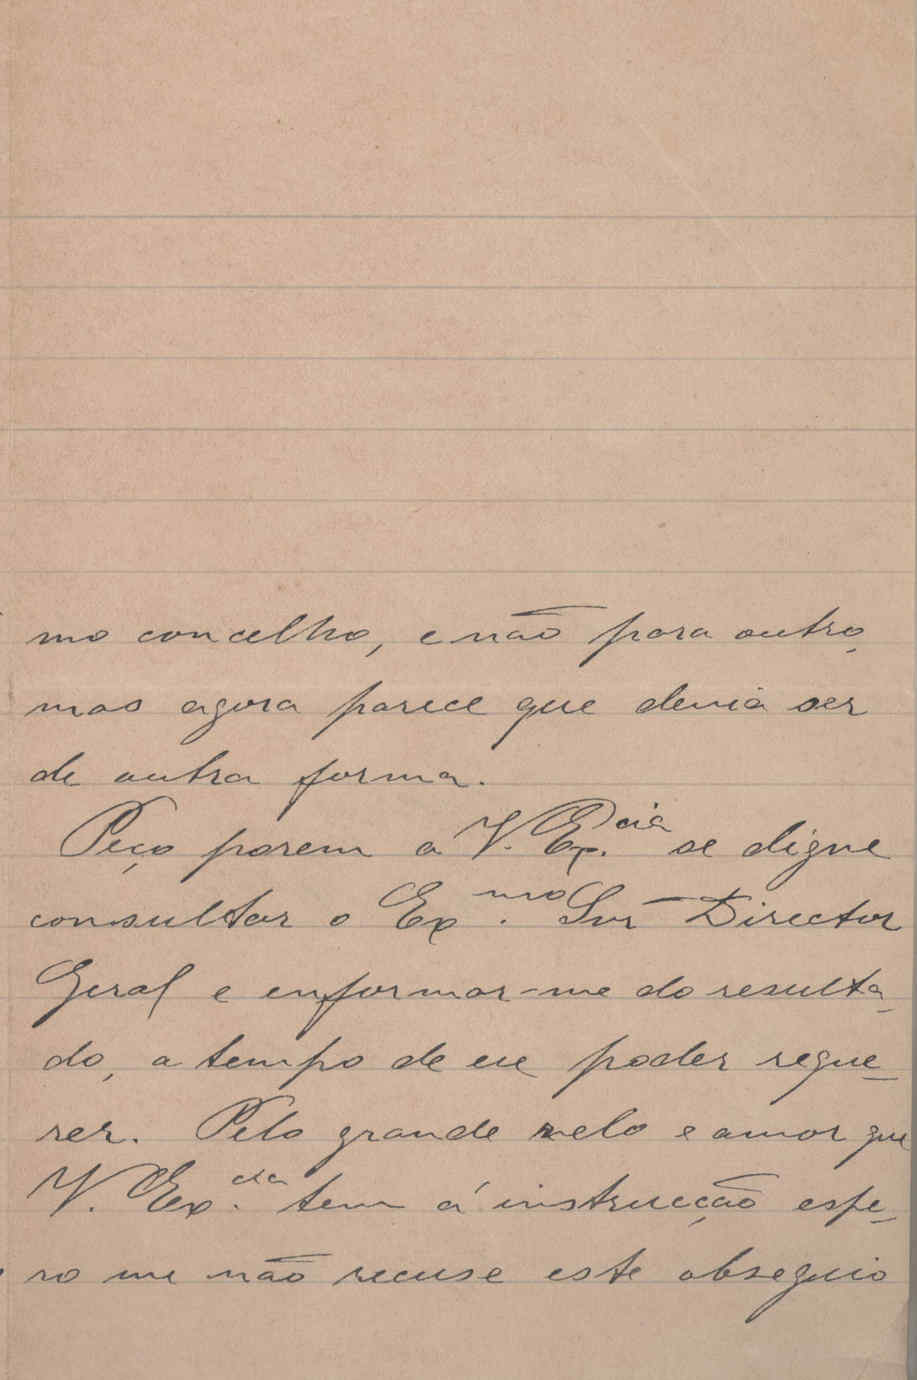 mo concelho, e não para outro,
mas agora parece que devia ser
de outra forma.
Peço porem a V. Ex.cia se digne
consultar o Ex.mo Snr Director
Geral e enformar-me do resulta-
do, a tempo de eu poder reque-
rer. Pelo grande zelo e amor que
V. Ex.cia tem á instrucção espe-
ro me não recuse este obsequio